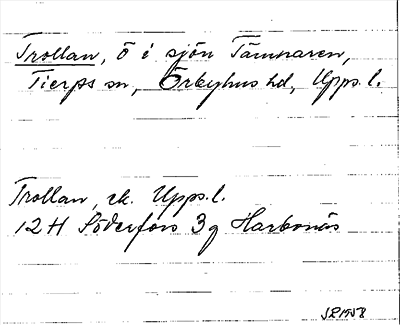 Trollan, ö i sjön Tämnaren,
Tierps sn, Örbyhus hd, Upps. l.
Trollan, ek. Upps. l.
12 H Söderfors 3g Harbonäs